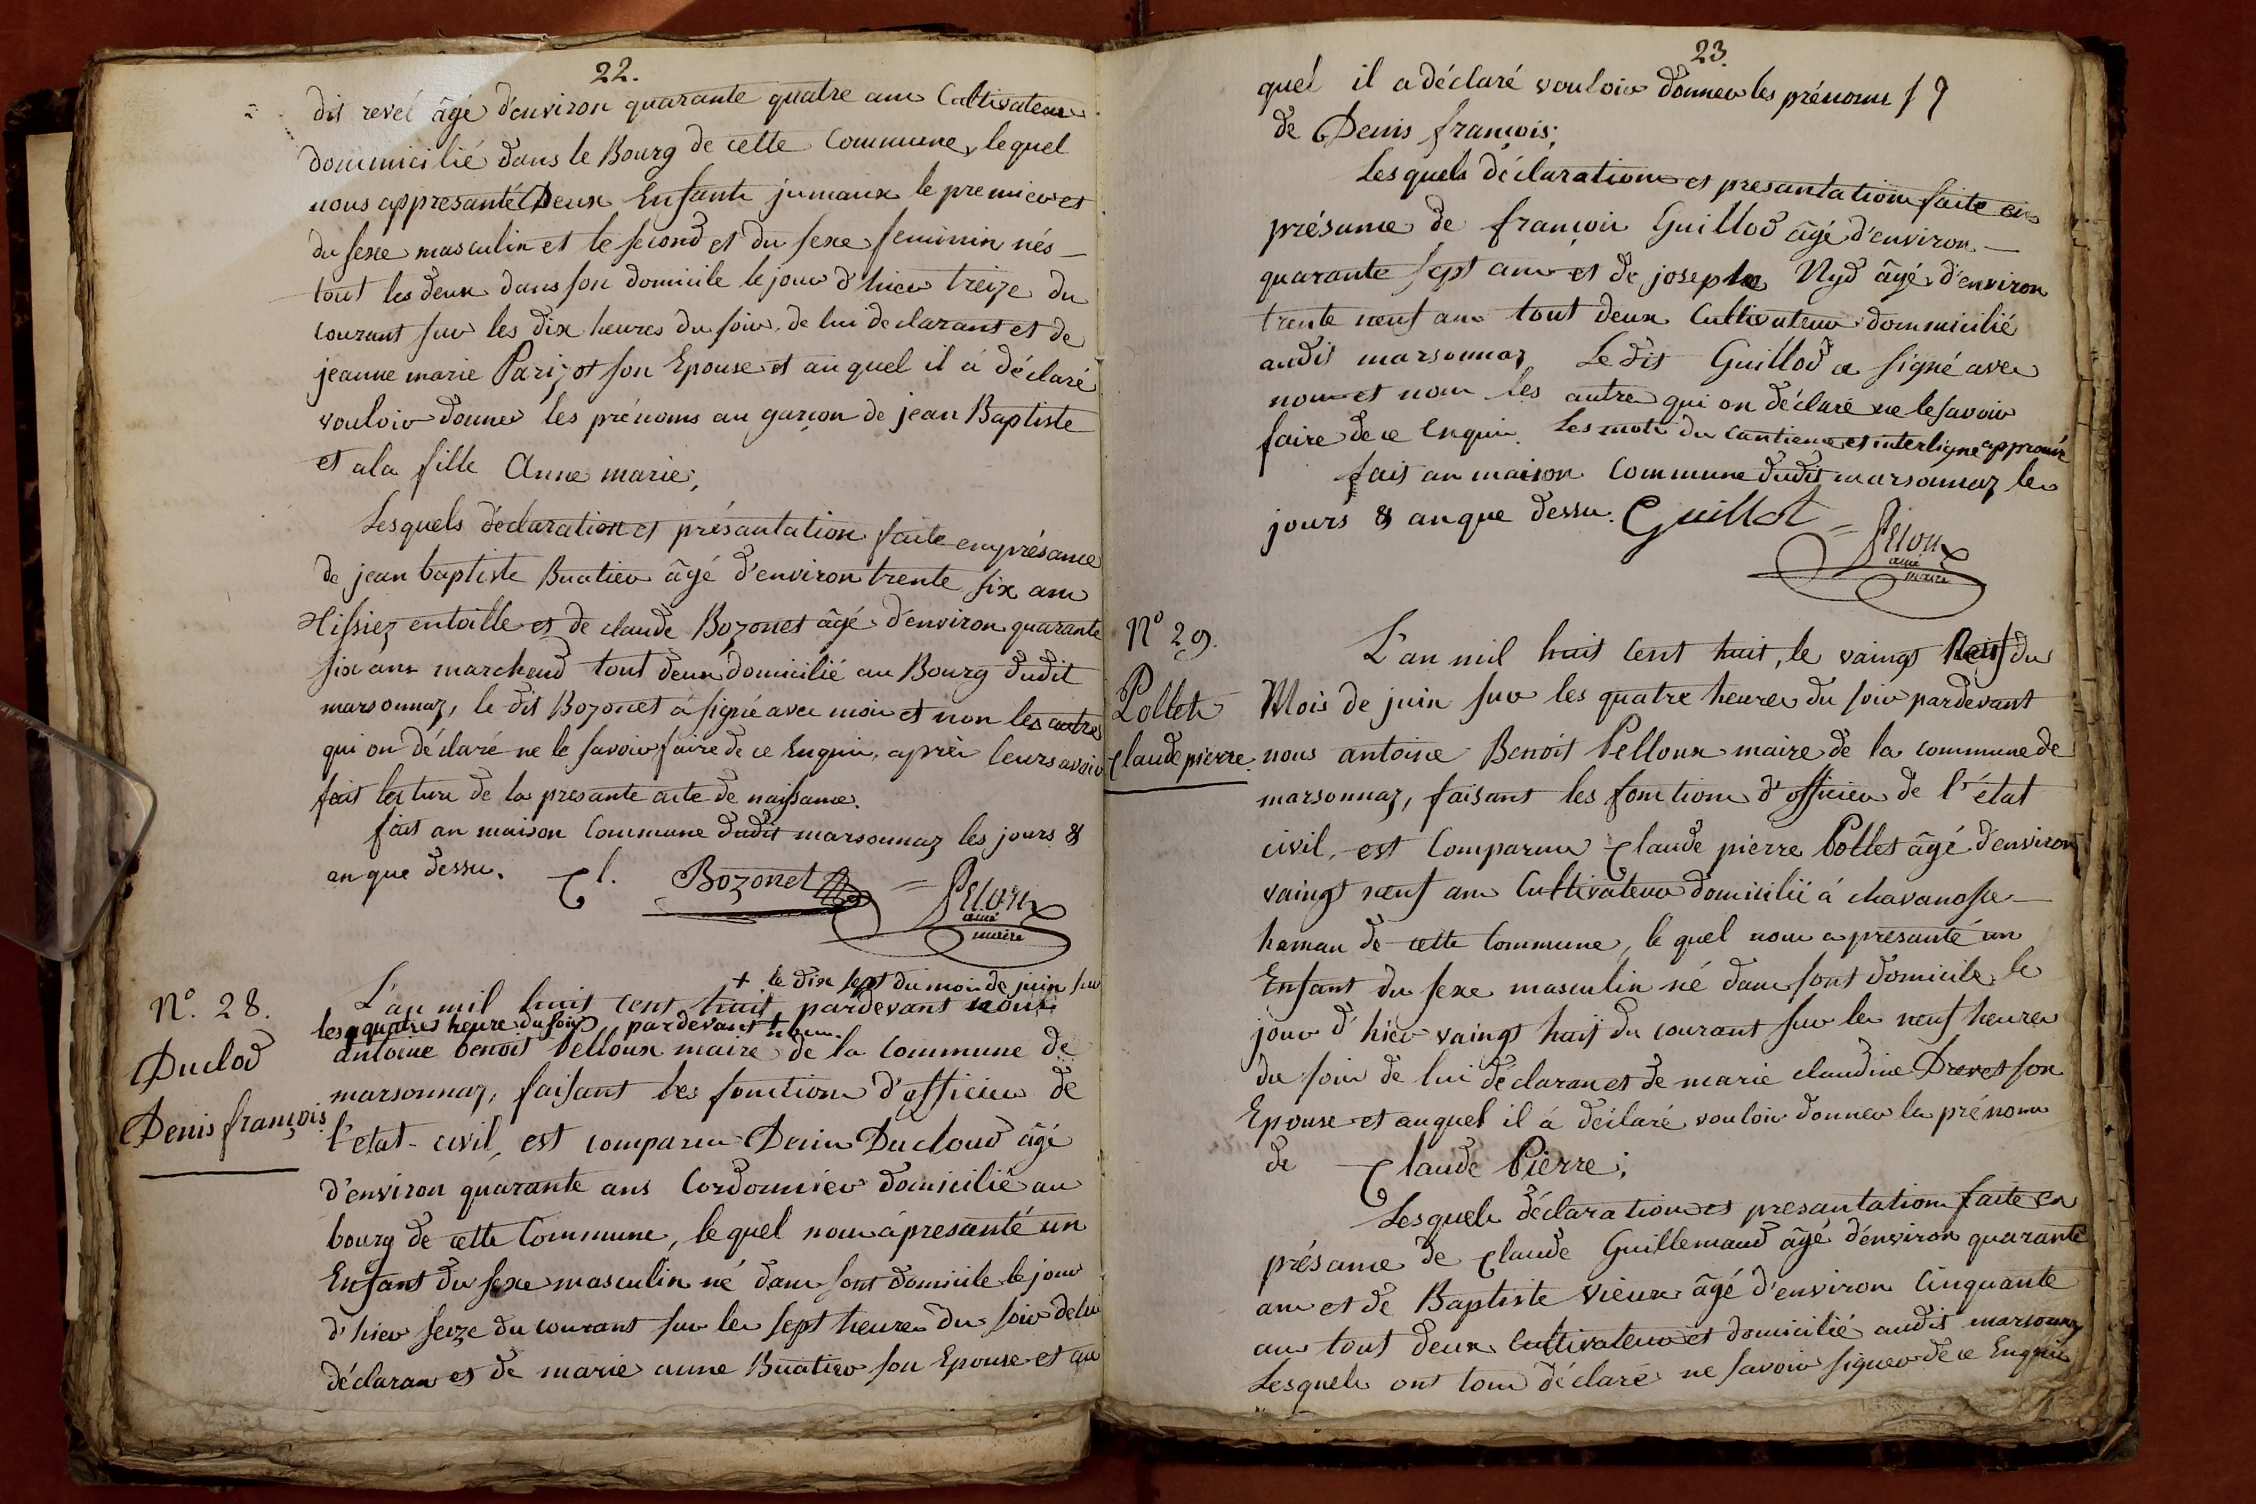 22.
dit revel âgé d'environ quarante quatre ans Cultivateur
dommicilié dans le Bourg de cette Commune, lequel
nous appresanté Deux Enfants jumaux le premier et
du sexe masculin et le second et du sexe feminin nés
tout les deux dans son domicile le jour d'hier treize du
courant sur les dix heures du soir, de lui declarant et de
jeanne marie Parizot son Epouse et auquel il á déclaré
vouloir donner les prénoms au garçon de jean Baptiste
et ala fille Anne marie;
Lesquels déclaration et présantation faite en présance
de jean baptiste Buatier âgé d'environ trente six ans
Tissiez entoille et de claude Bozonet âgé d'environ quarante
six ans marchend tout deux domicilié au Bourg dudit
marsonnaz, le dit Bozonet á signé avec moi et non les autres
qui on déclaré ne le savoir faire de ce Enquis, après leurs avoir
fait lecture de la presante acte de naissance.
fait an maison Commune dudit marsonnaz les jours &
an que dessu. Cl. Bozonet = Peloux
ainé
maire
N.° 28.
Duclod
Denis françois
+ le dix sept du moi de juin sur
L'an mil huit cent huit, pardevant nous
les quatres heure du soir pardevant nous
antoine benoit Pelloux maire de la Commune de
marsonnaz, faisant les fonction d'officier de
l'etat civil, est comparu Denis Ducloud âgé
d'environ quarante ans Cordonnier domicilié au
bourg de cette Commune, le quel nous á presanté un
Enfant du sexe masculin né dans sont domicile le jour
d'hier seize du courant sur les sept heures du soir de lui
déclaran et de marie anne Buatier son Epouse et au
23.
quel il a déclaré vouloir donner les prénoms
de Denis françois;
Lesquels déclaration et presantation faite en
présance de françois Guillod âgé d'environ
quarante sept ans et de joseph Nyd âgé d'environ
trente neuf ans tout deux Cultivateur dommicilié
audit marsonnaz Le dit Guillod a signé avec
nous et non les autre qui on déclaré ne le savoir
faire de ce Enquis. Les mots du cantieme et interligne approuvé
fait an maison Commune dudit marsonnaz les
jours & anque dessu. Guillot = Peloux
ainé
maire
N.° 29.
Pollet
Claude pierre
L'an mil huit Cent huit, le vaingt Neuf du
Mois de juin sur les quatre heures du soir pardevant
nous antoine Benoit Pelloux maire de la commune de
marsonnaz, faisant les fonctions d'officier de l'état
civil, est Comparu Claude pierre Pollet âgé d'environ
vaingt neuf ans Cultivateur domicilié á chavanosse
hamau de cette Commune, le quel nous a presanté un
Enfant du sexe masculin né dans sont domicile le
jour d'hier vaingt huit du courant sur les neuf heures
du soir de lui déclaran et de marie claudine Drevet son
Epouse et auquel il á déclaré vouloir donner les prénoms
de Claude Pierre;
Lesquels déclaration et presantation faite en
présance de Claude Guillemaud âgé d'environ quarante
ans et de Baptiste vieux âgé d'environ Cinquante
ans tout deux Cultivateur et domicilié audit marsonnaz
Lesquels ont tous déclaré ne savoir signer de ce Enquis